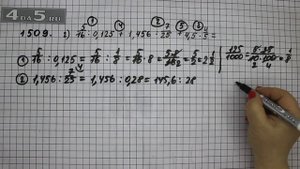 4AD5.RU
① ④ ② ⑤ ③
1509. 2) 5/16 : 0,125 + 1,456 : 7/25 + 4,5 · 4/5 =
① 5/16 : 0,125 = 5/16 : 1/8 = 5/16 · 8 = 5·8/16 2 = 5/2 = 2 1/2
125/1000 = 5·25/10·100 = 1/8
2 4
② 1,456 : 7/25 = 1,456 : 0,28 = 145,6 : 28